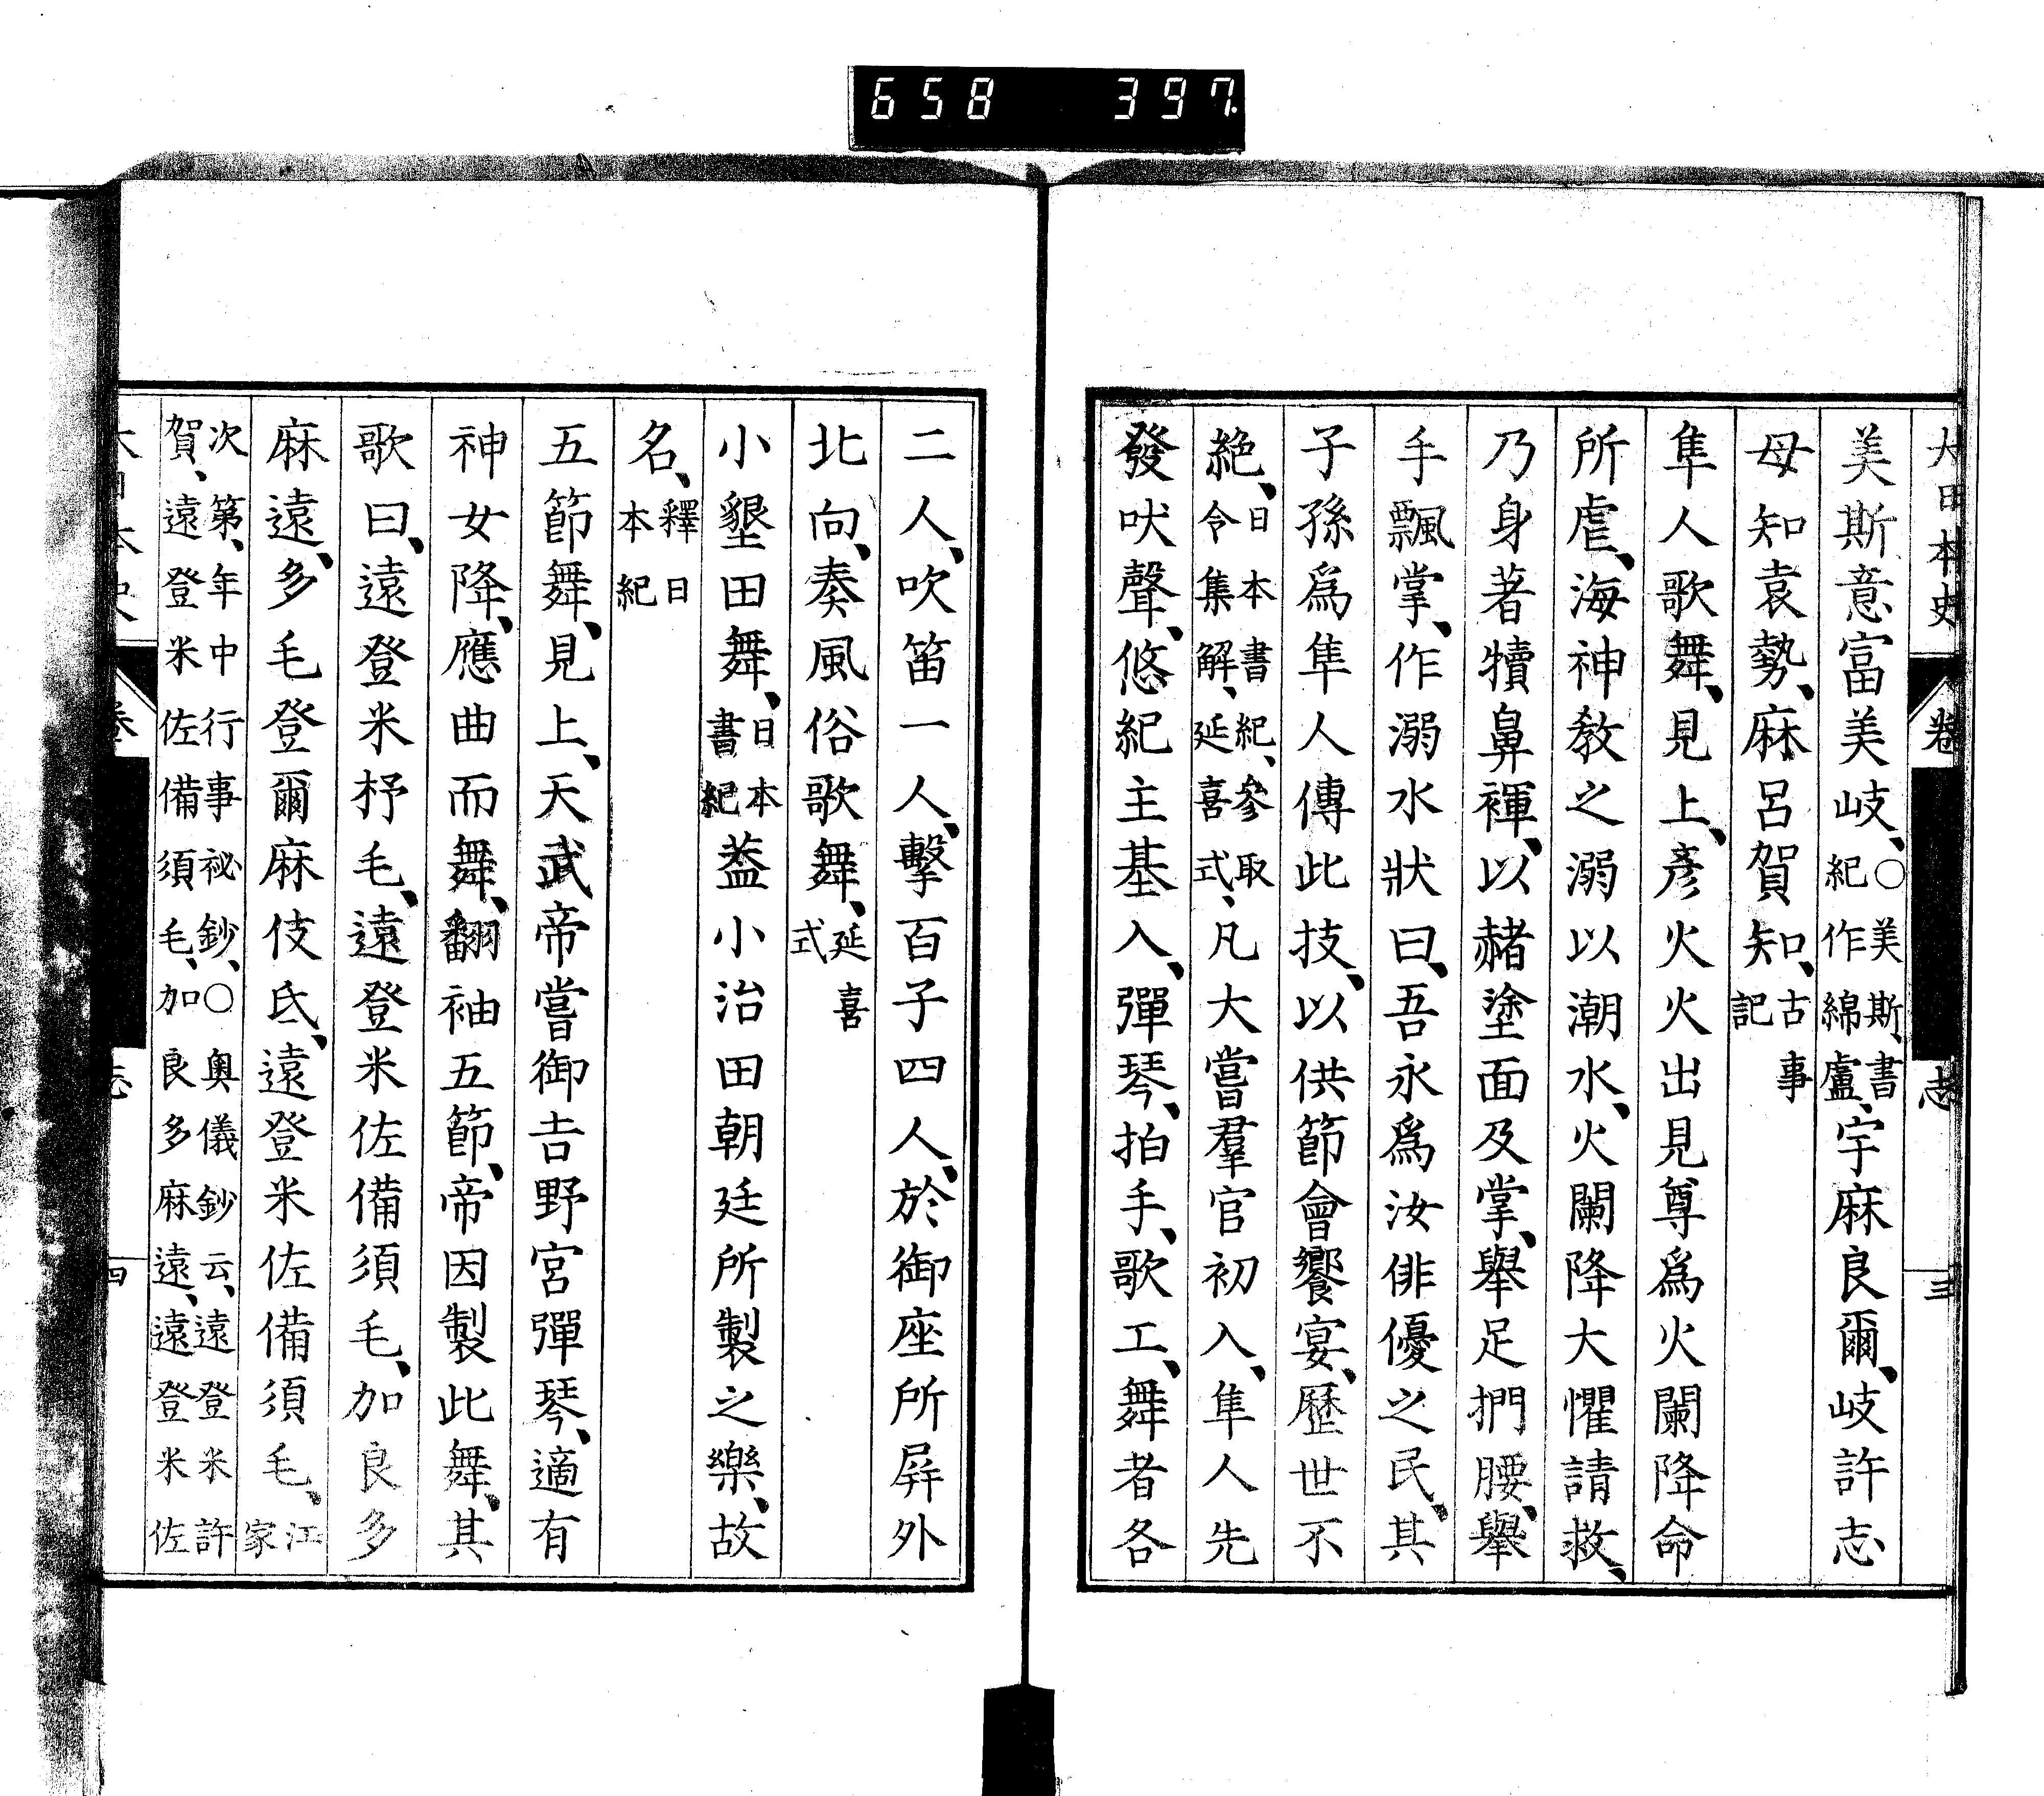 658 397
大日本史 卷 志 三
美斯意富美岐、○美斯、書紀作綿盧、宇麻良爾、岐許志
母知袁勢、麻呂賀知、古事記
隼人歌舞、見上、彥火火出見尊爲火闌降命
所虐、海神教之溺以潮水、火闌降大懼請救、
乃身著犢鼻褌、以赭塗面及掌、舉足捫腰、舉
手飄掌、作溺水狀曰、吾永爲汝俳優之民、其
子孫爲隼人傳此技、以供節會饗宴、歷世不
絕、日本書紀、參取令集解、延喜式、凡大嘗羣官初入、隼人先
發吠聲、悠紀主基入、彈琴、拍手、歌工、舞者各
二人、吹笛一人、擊百子四人、於御座所屛外
北向、奏風俗歌舞、延喜式
小墾田舞、日本書紀蓋小治田朝廷所製之樂、故
名、釋日本紀
五節舞、見上、天武帝嘗御吉野宮彈琴、適有
神女降、應曲而舞、翻袖五節、帝因製此舞、其
歌曰、遠登米杼毛、遠登米佐備須毛、加良多
麻遠、多毛登爾麻伎氐、遠登米佐備須毛、江家
次第、年中行事祕鈔、○奧儀鈔云、遠登米許
賀、遠登米佐備須毛、加良多麻遠、遠登米佐
大日本史 卷 志 四